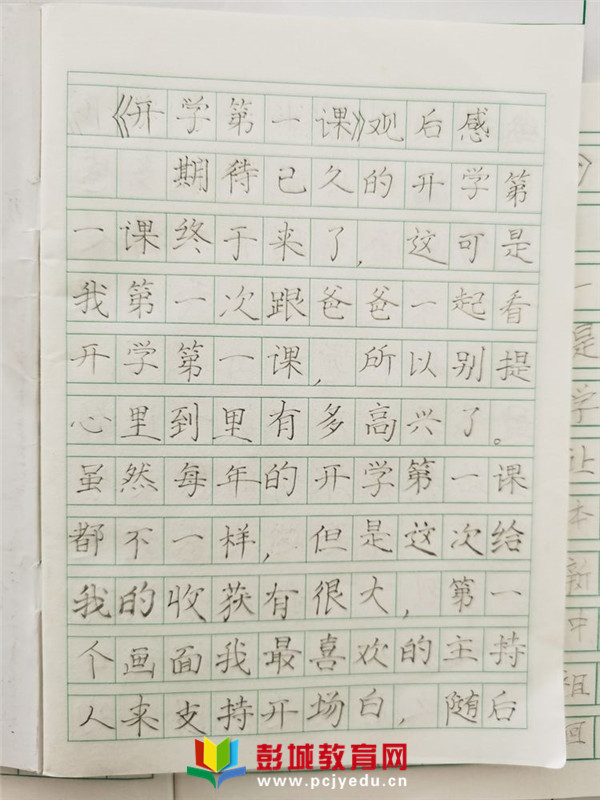 《开学第一课》观后感
期待已久的开学第
一课终于来了,这可是
我第一次跟爸爸一起看
开学第一课,所以别提
心里到里有多高兴了。
虽然每年的开学第一课
都不一样,但是这次给
我的收获有很大,第一
个画面我最喜欢的主持
人来支持开场白,随后
一
是
学
让
本
新
中
祖
河
彭城教育网
www.pcjyedu.cn